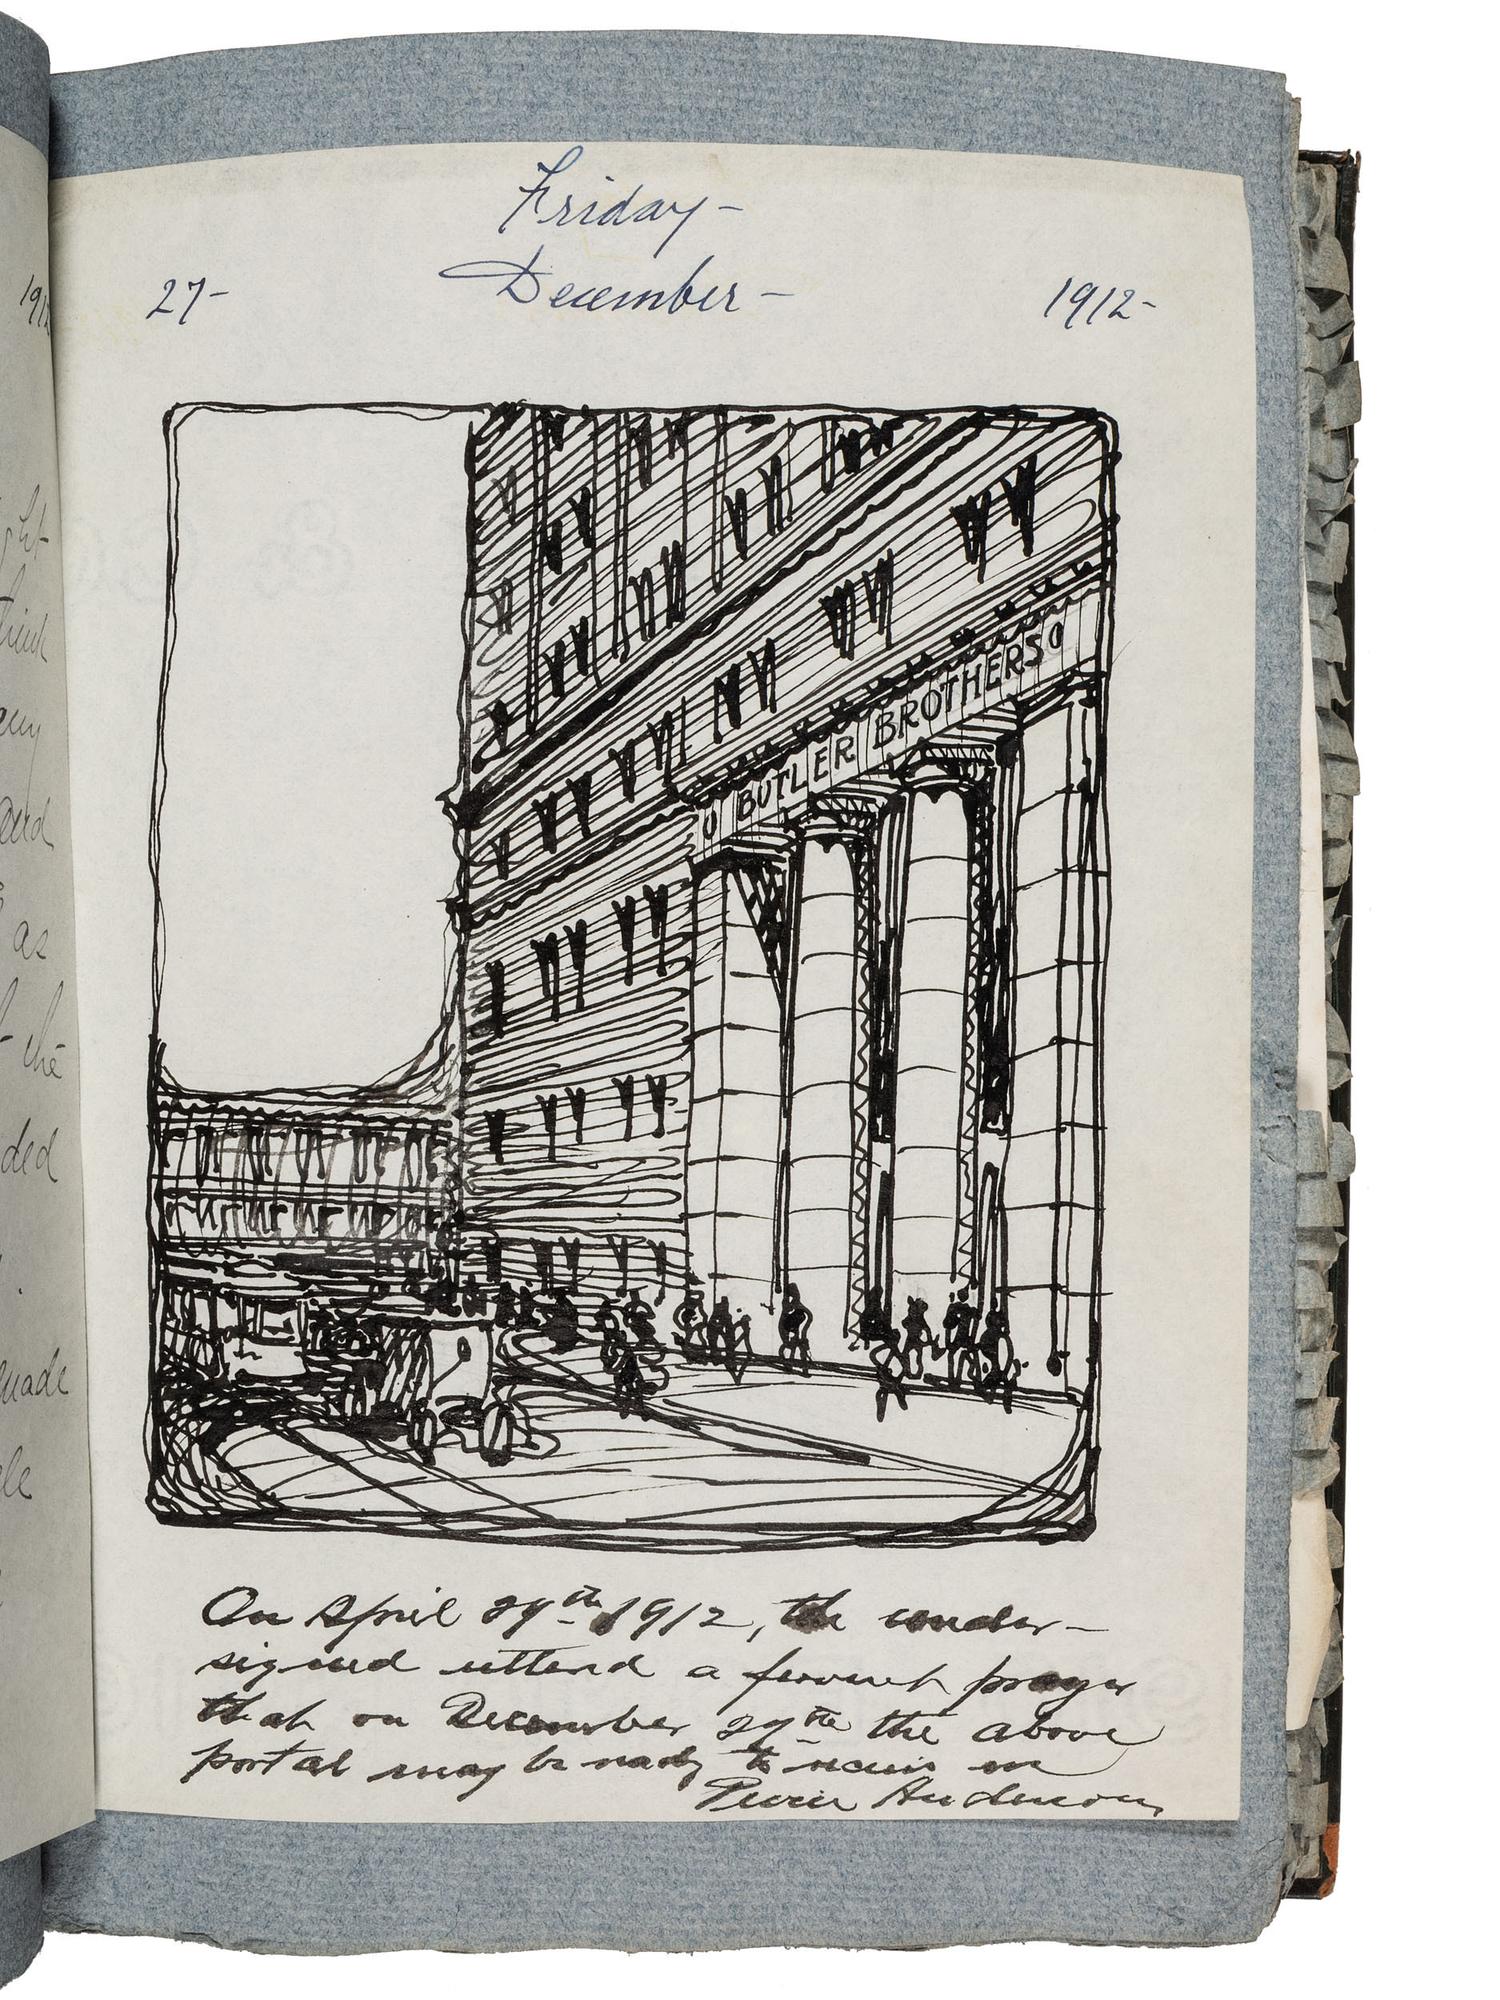 Friday-
27- December- 1912-
BUTLER BROTHERS
On April 29th 1912, the under-
signed uttered a fervent prayer
that on December 27th the above
portal may be ready to receive me
Pierce Anderson
1912
ght
think
any
ard
as
the
ded
made